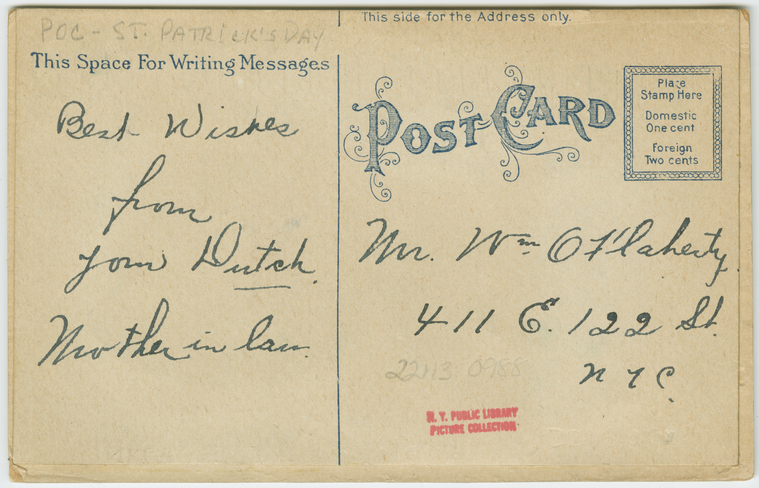 POC - ST. PATRICK'S DAY
This Space For Writing Messages
Best Wishes
from
your Dutch
Mother in law.
This side for the Address only.
POST CARD
Place
Stamp Here
Domestic
One cent
Foreign
Two cents
Mr. Wm O'Flaherty
411 E. 122 St.
NYC.
N. Y. PUBLIC LIBRARY
PICTURE COLLECTION